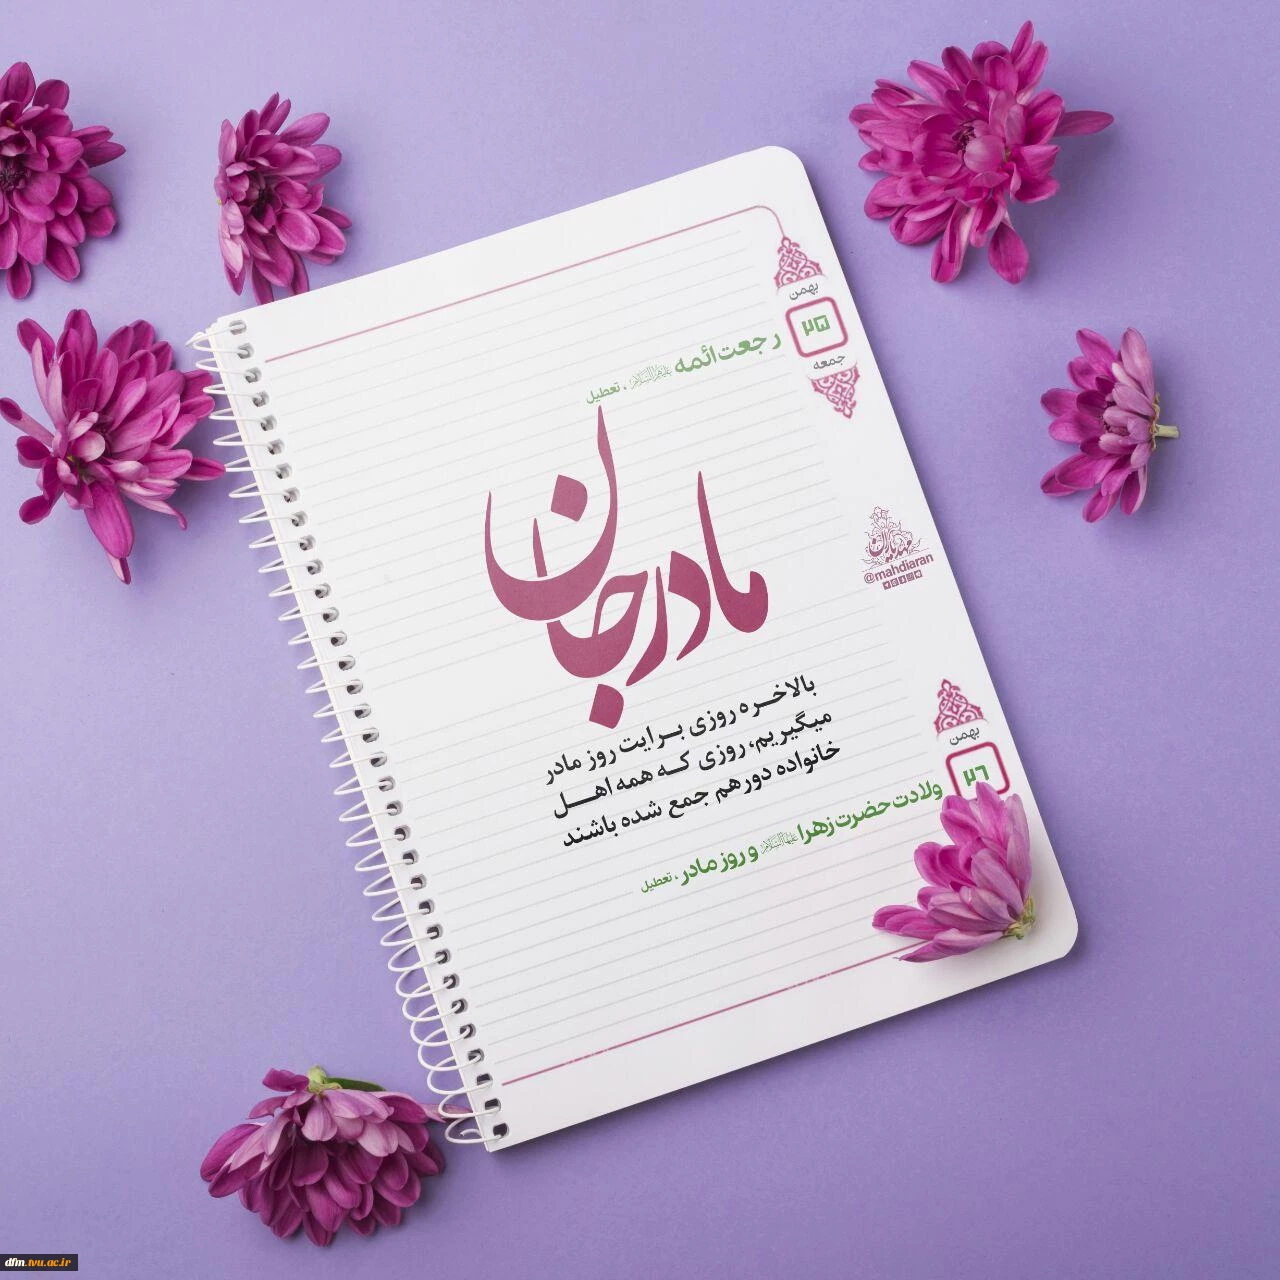 بهمن
۲۵
جمعه
رجعت ائمه علیهم‌السلام ، تعطیل
مادرجان
مهدیاران
@mahdiaran
بالاخره روزی برایت روز مادر
میگیریم، روزی که همه اهل
خانواده دورهم جمع شده باشند
بهمن
۲۶
ولادت حضرت زهرا علیهاالسلام و روز مادر ، تعطیل
dfm.tvu.ac.ir